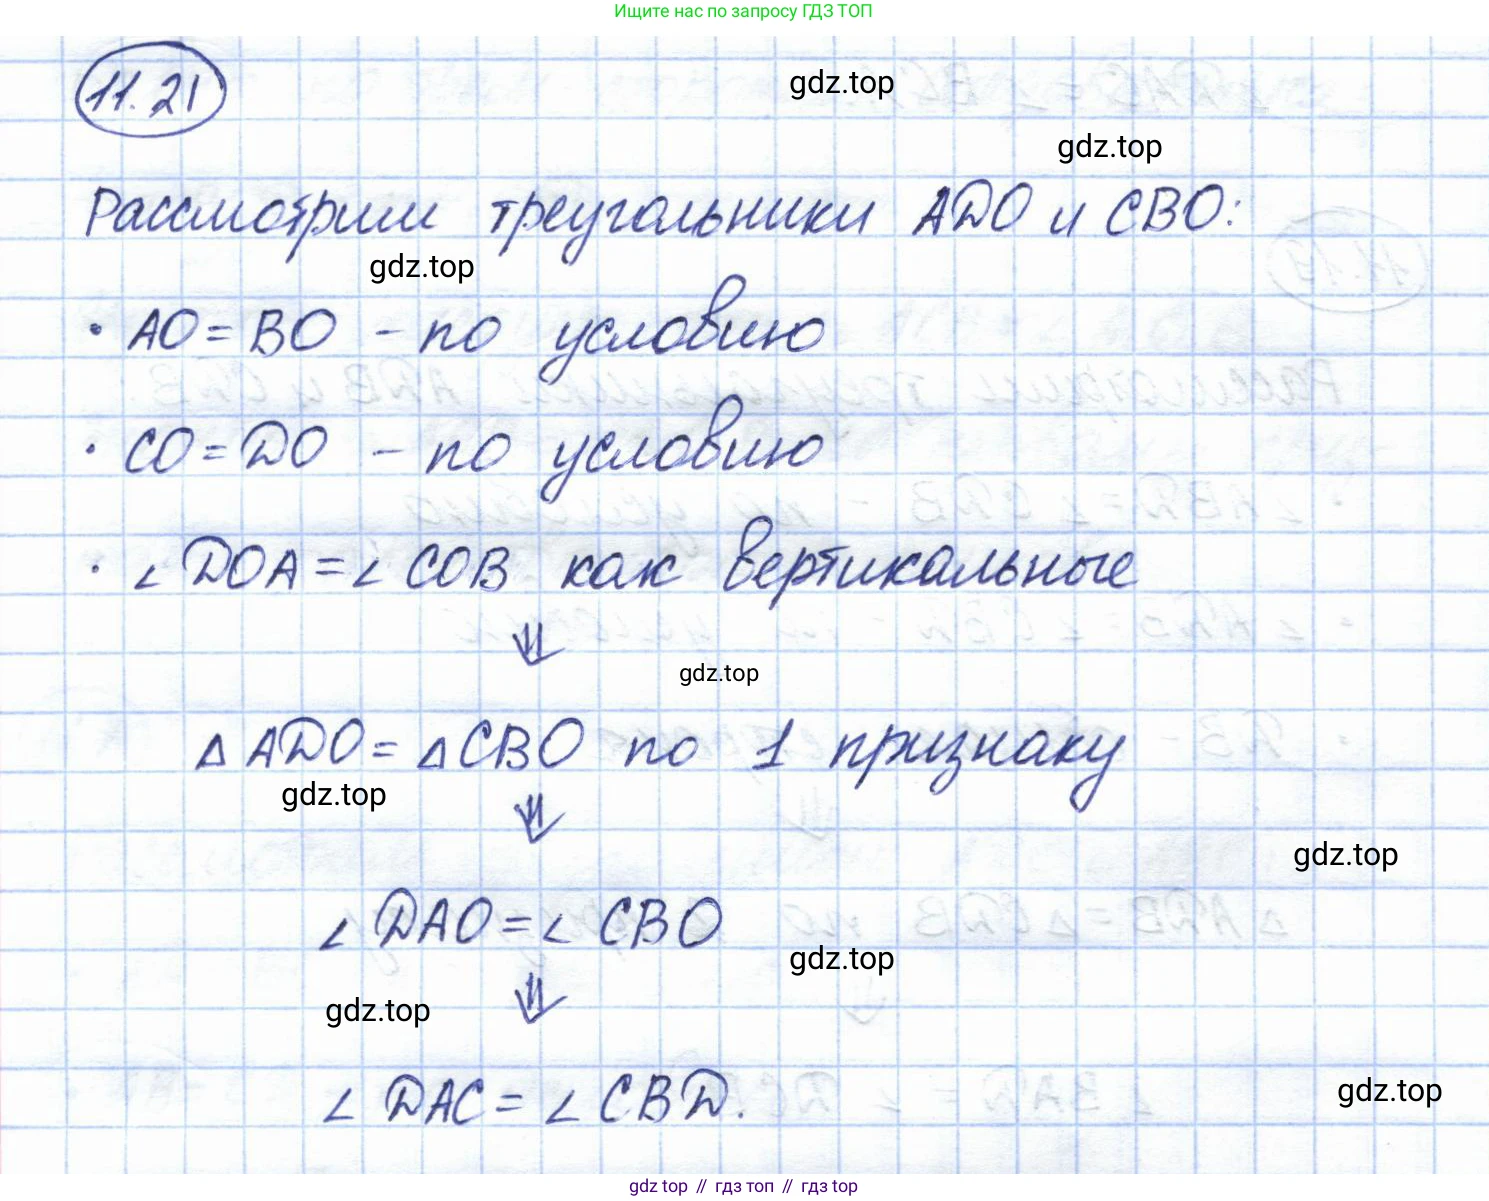 Ищите нас по запросу ГДЗ ТОП
11.21
gdz.top
gdz.top
Рассмотрим треугольники ADO и CBO:
gdz.top
· AO = BO - по условию
· CO = DO - по условию
· ∠DOA = ∠COB как вертикальные
⇓
gdz.top
△ADO = △CBO по 1 признаку
gdz.top
⇓
gdz.top
∠DAO = ∠CBO
gdz.top
⇓
gdz.top
∠DAC = ∠CBD.
gdz.top
gdz top // гдз топ // гдз top